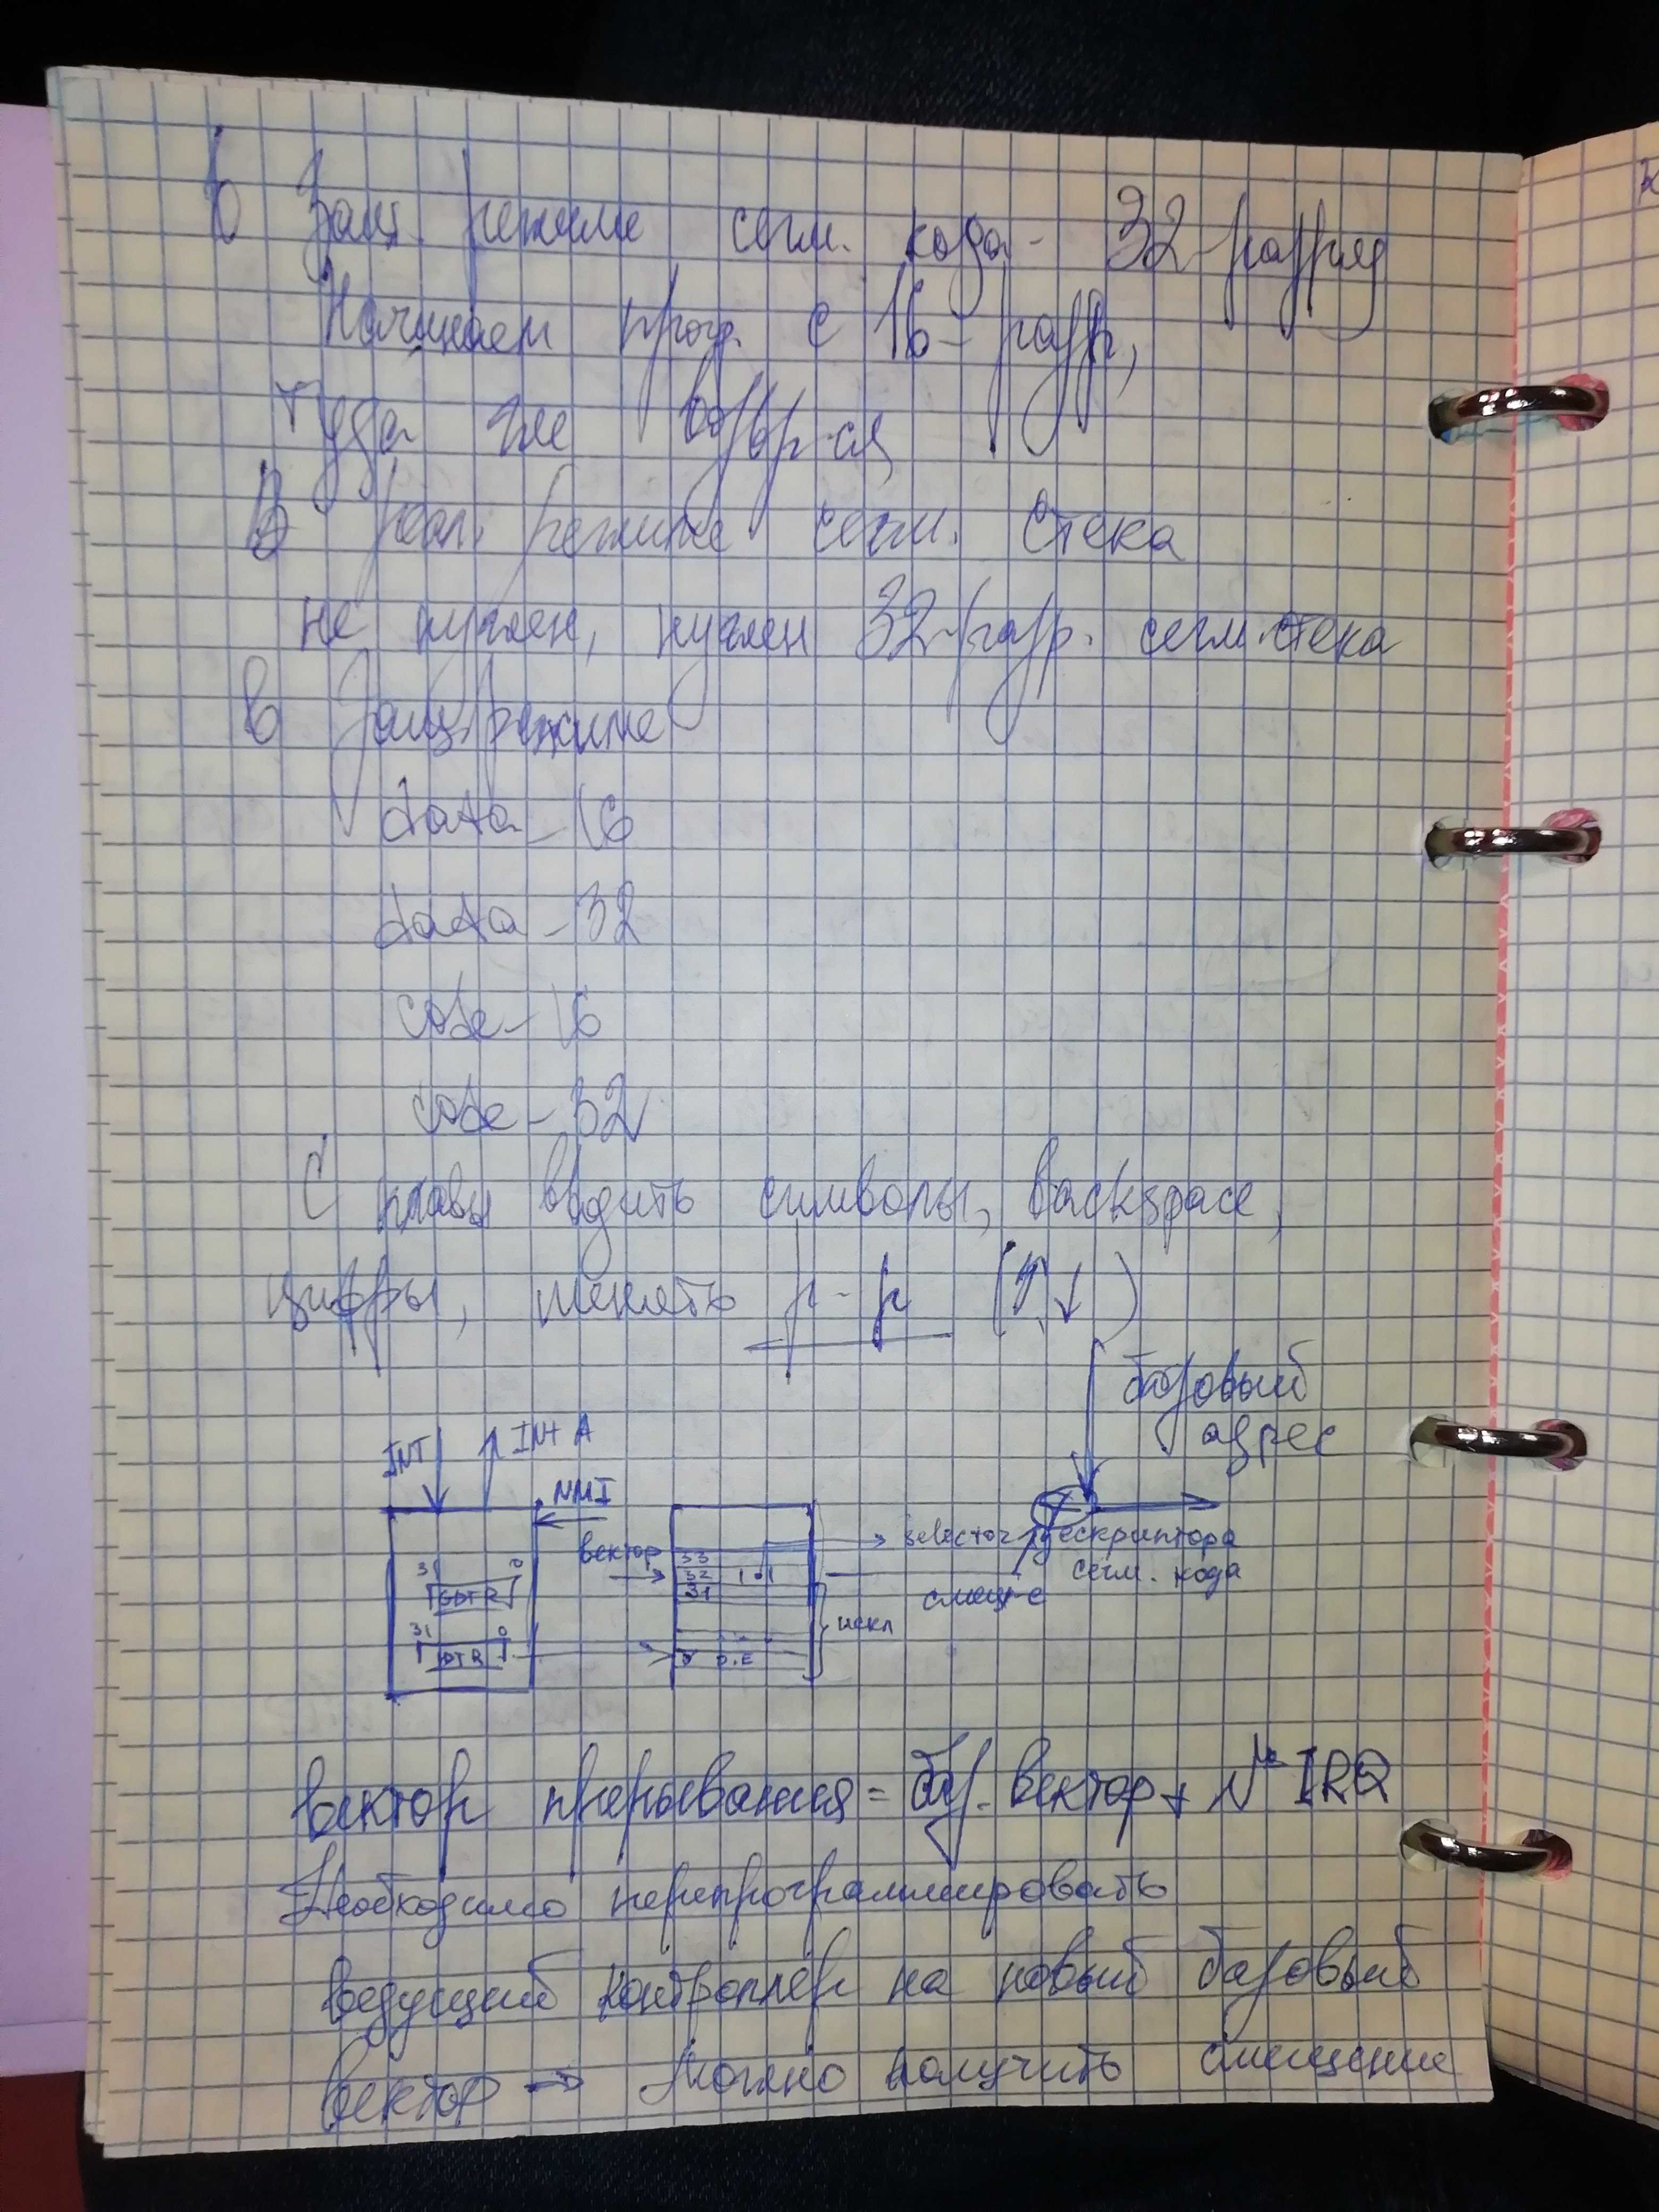 В Защ. режиме сегм. кода - 32-разряд
Начинаем прогр. с 16-разр,
туда же возвр-ся
В реал. режиме сегм. стека
не нужен, нужен 32-разр. сегм. стека
в защ. режиме
data-16
data-32
code-16
code-32
С клавы вводить символы, backspace,
цифры, менять р-р (↑,↓)
базовый
адрес
INT INTA
NMI
вектор 33 selector дескриптора
31 0 32 сегм. кода
GDTR 31 смещ-е
31 0 искл
IDTR 0 D.E
вектор прерывания = баз. вектор + № IRQ
Необходимо перепрограммировать
ведущий контроллер на новый базовый
вектор → Можно получить смещение